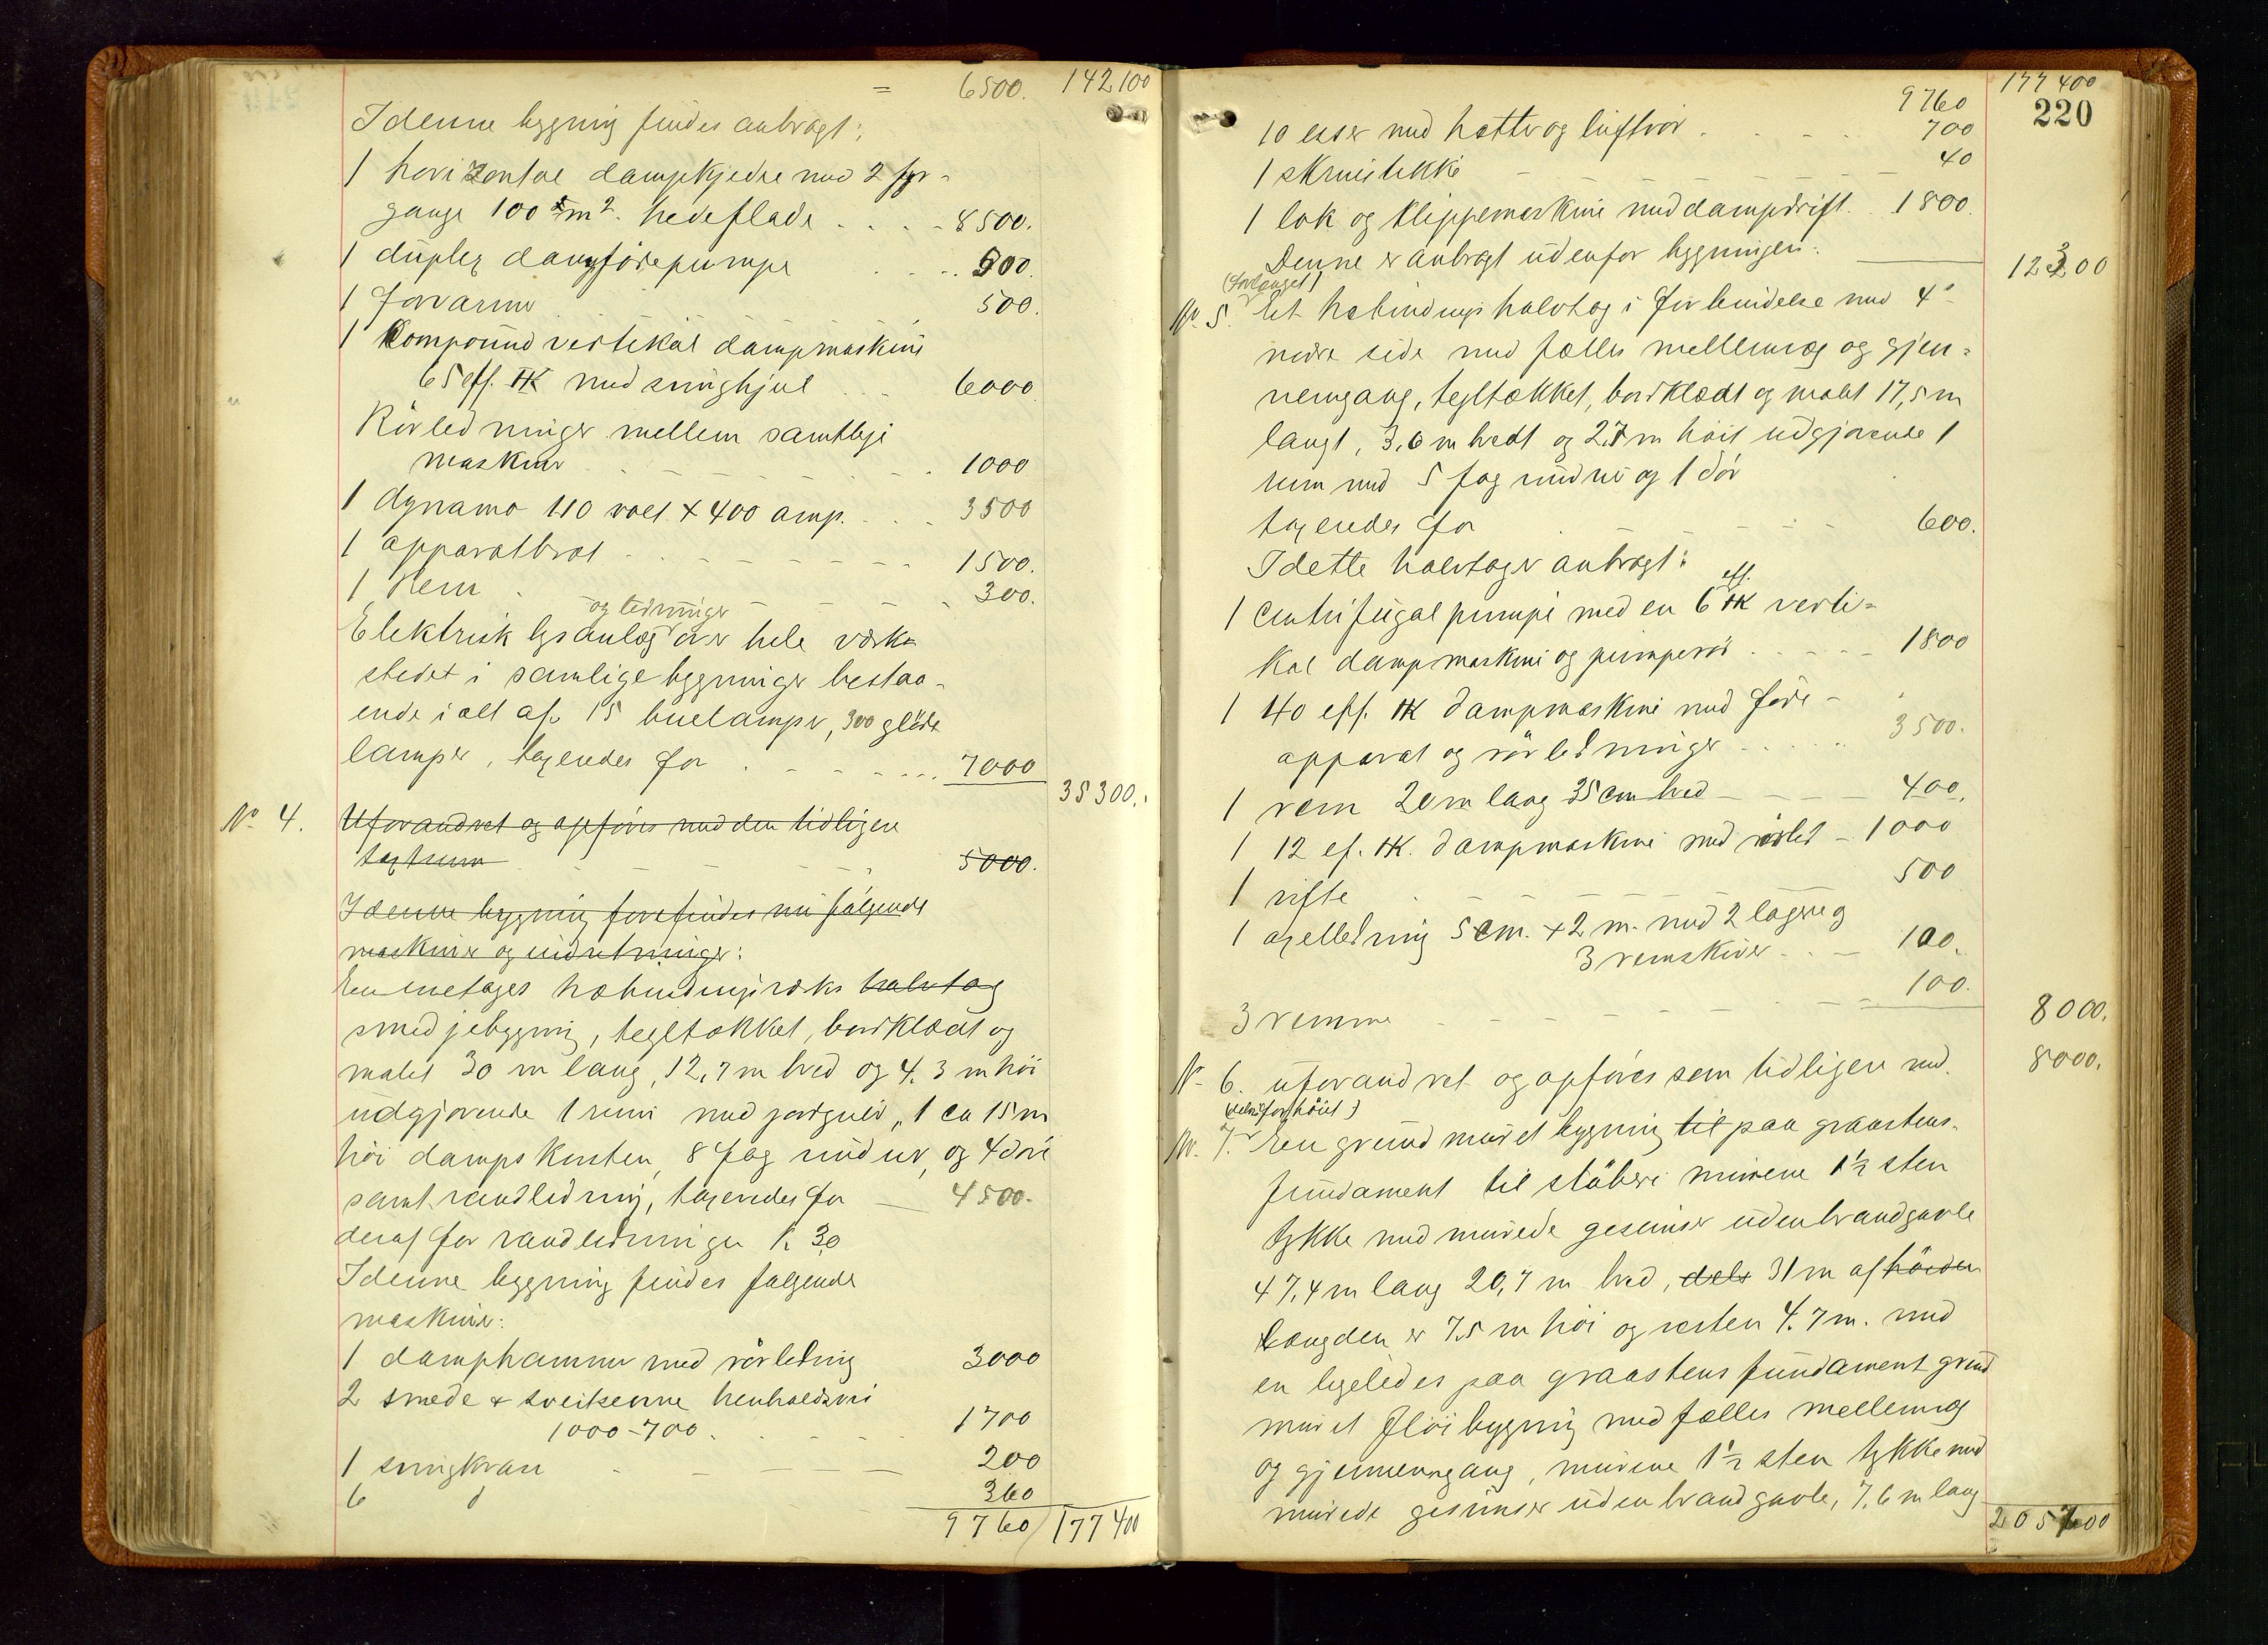 = 6500. 142100
I denne bygning findes anbragt:
1 horizontal dampkjedel med 2 fyr-
gange 100 m². hedeflade . . . . 8500.
1 duplex dampfødepumpe . . . . 900.
1 forvarmer 500.
1 Compound vertikal dampmaskine
65 eff. HK med svinghjul . . 6000
Rørledninger mellem samtlige
maskiner . - - - . 1000
1 dynamo 110 volt × 400 amp. . . . 3500
1 apparatbræt . . - - - - - - 1500.
1 Rem . - - - - 300.
og ledninger
Elektrisk lysanlæg over hele værk-
stedet i samlige bygninger bestaa-
ende i alt af 15 buelamper, 300 gløde
lamper, taxeredes for . - - - - ... 7000
35300.
No. 4. Uforandret og opføres med den tidligere
taxtsum - - - - 5000.
I denne bygning forefindes nu følgende
maskiner og indretninger:
En enetages hæbindingsværks halvtag
smedjebygning, tegltækket, bordklædt og
malet 30 m lang, 12,7 m bred og 4.3 m høi
udgjørende 1 rum med jordgulv, 1 ca 15 m
høi dampskorsten, 8 fag vinduer, og 4 døre
samt vandledning, taxeredes for — 4500.
deraf for vandledningen k 30
I denne bygning findes følgende
maskiner:
1 damphammer med rørledning 3000
2 smede & sveiseovne henholdsvis
1000-700 . - - . 1700
1 svingkran - — — — 200
6 d 360
9760 177400
177400
9760
220
10 esser med hætter og luftrør . - . - . 700
1 skruestikke - - - - - 40
1 lok og klippemaskine med dampdrift. 1800.
Denne er anbragt udenfor bygningen. —— 12300
(forlænget)
No. 5. Et hæbindings halvtag i forbindelse med 4s
nedre side med fælles mellemvæg og gjen-
nemgang, tegltækket, bordklædt og malet 17,5 m
langt, 3,6 m bredt og 2,7 m høit udgjørende 1
rum med 5 fag vinduer og 1 dør
taxeredes for . - - - - - 600.
I dette halvtag er anbragt:
eff.
1 Centrifugalpumpe med en 6 HK verti-
kal dampmaskine og pumperør . . - - - 1800
1 40 eff. HK dampmaskine med føde-
apparat og rørledninger . . . . . 3500.
1 rem 20 m lang 35 cm bred — — — 400.
1 12 ef. HK. dampmaskine med rørled - 1000
1 vifte . - - - - - - 500
1 axelledning 5 cm. × 2 m. med 2 lagere og
3 remskiver . . — 100.
3 remme - - - - - - 100.
8000.
No 6. uforandret og opføres som tidligere med. 8000.
(delvis forhøiet)
No. 7. En grundmuret bygning til paa graastens-
fundament til støberi murene 1½ sten
tykke med murede gesimser uden brandgavle
47,4 m lang 20,7 m bred, dels 31 m af høiden
længden er 7.5 m høi og resten 4.7 m. med
en ligeledes paa graastens fundament grund
muret fløibygning med fælles mellemvæg
og gjennemgang, murene 1½ sten tykke med
murede gesimser uden brandgavle, 7.6 m lang
205700